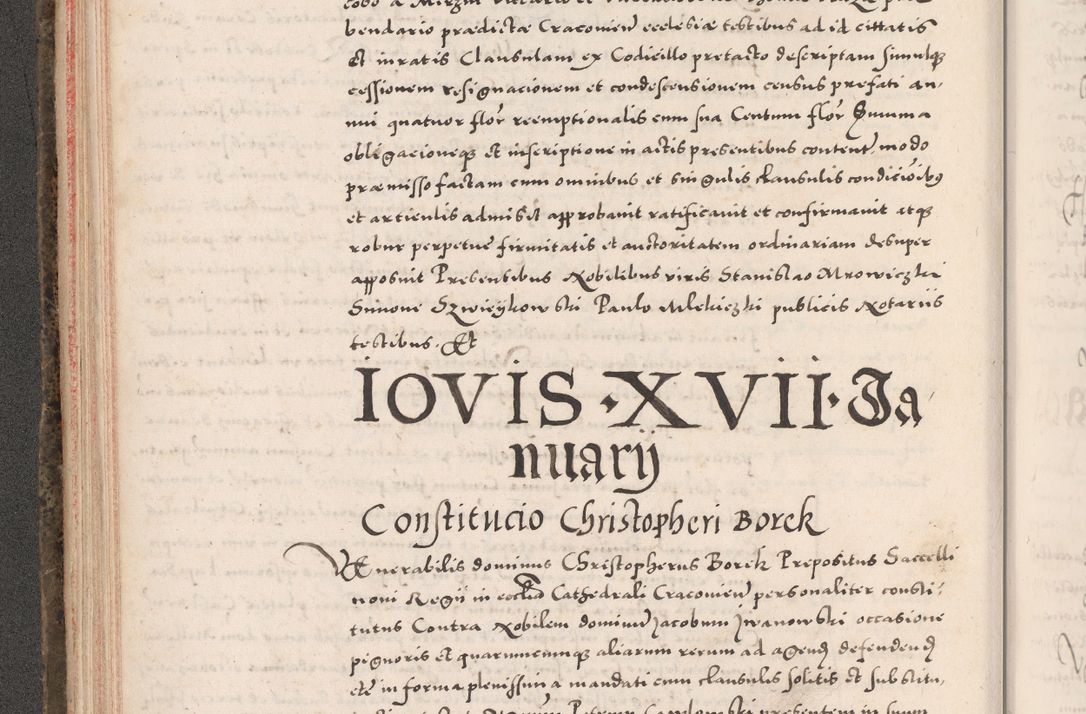 bendario prædictæ Cracovien ecclesiæ testibus ad id cittatis
Et iuratis Clausulam ex Codicillo pretacto descriptam simulqꝫ
cessionem resignacionem et condescensionem census prefati an,
nui quatuor flor reemptionalis cum sua Centum flor Summa
obligacioneqꝫ Et inscriptione in actis presentibus content modo
præmisso factam cum omnibus et singulis clausulis condicioibꝫ
et articulis admisit approbauit ratificauit et confirmauit atqꝫ
robur perpetuę firmitatis et auctoritatem ordinariam desuper
apposuit Presentibus Nobilibus viris Stanislao Mrowiczki
Simone Szwieykowski Paulo Mlekiczki publicis Notariis
testibus. Et
IOVIS · XVII · Ja
nuarij
Constitucio Christopheri Borek
Venerabilis dominus Christopherus Borek Prepositus Saccelli
noui Regij in ecclia Cathedrali Cracovien personaliter consti:
tutus Contra Nobilem dominum Jacobum Jwanowski occasione
pignoris et quarumcumqꝫ aliarum rerum ad agend defendend
etc in forma plenissima mandati cum clausulis solitis et substitu,